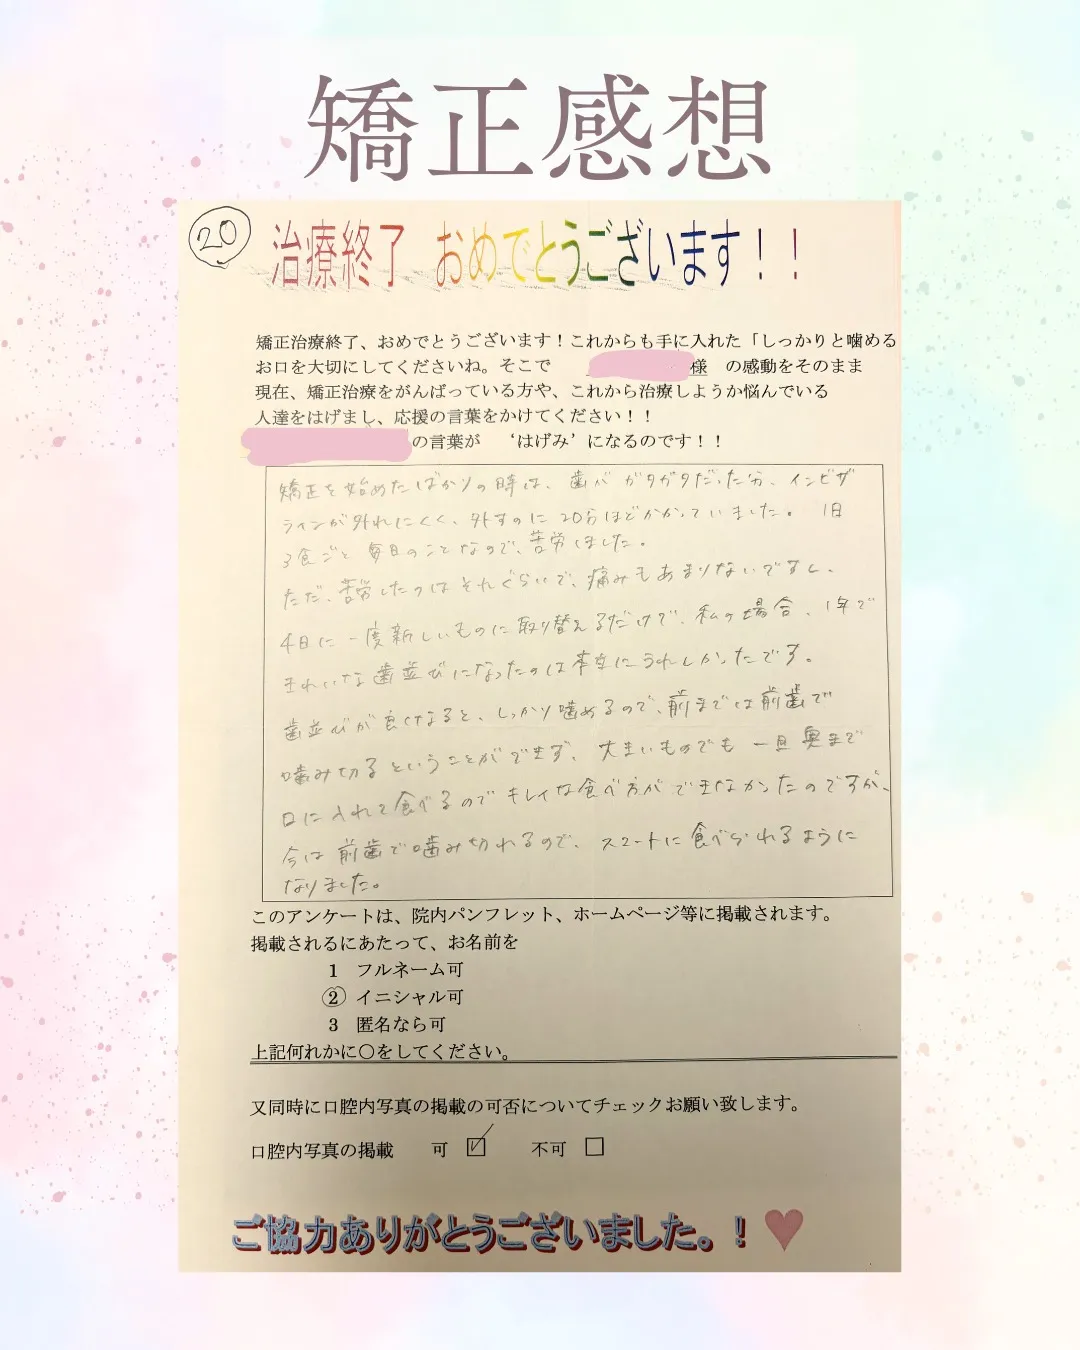 矯正感想
20
治療終了 おめでとうございます！！
矯正治療終了、おめでとうございます！これからも手に入れた「しっかりと噛める
お口を大切にしてくださいね。そこで 様 の感動をそのまま
現在、矯正治療をがんばっている方や、これから治療しようか悩んでいる
人達をはげまし、応援の言葉をかけてください！！
の言葉が ‘はげみ’になるのです！！
矯正を始めたばかりの時は、歯がガタガタだった分、インビザ
ラインが外れにくく、外すのに20分ほどかかっていました。1日
3食ごと毎日のことなので、苦労しました。
ただ、苦労したのはそれぐらいで、痛みもあまりないですし、
4日に一度新しいものに取り替えるだけで、私の場合、1年で
きれいな歯並びになったのは本当にうれしかったです。
歯並びが良くなると、しっかり噛めるので、前までは前歯で
噛み切るということができず、大きいものでも一旦奥まで
口に入れて食べるのでキレイな食べ方ができなかったのですが、
今は前歯で噛み切れるので、スマートに食べられるように
なりました。
このアンケートは、院内パンフレット、ホームページ等に掲載されます。
掲載されるにあたって、お名前を
1 フルネーム可
2 イニシャル可
3 匿名なら可
上記何れかに〇をしてください。
又同時に口腔内写真の掲載の可否についてチェックお願い致します。
口腔内写真の掲載 可 ☑ 不可 □
ご協力ありがとうございました。！♥